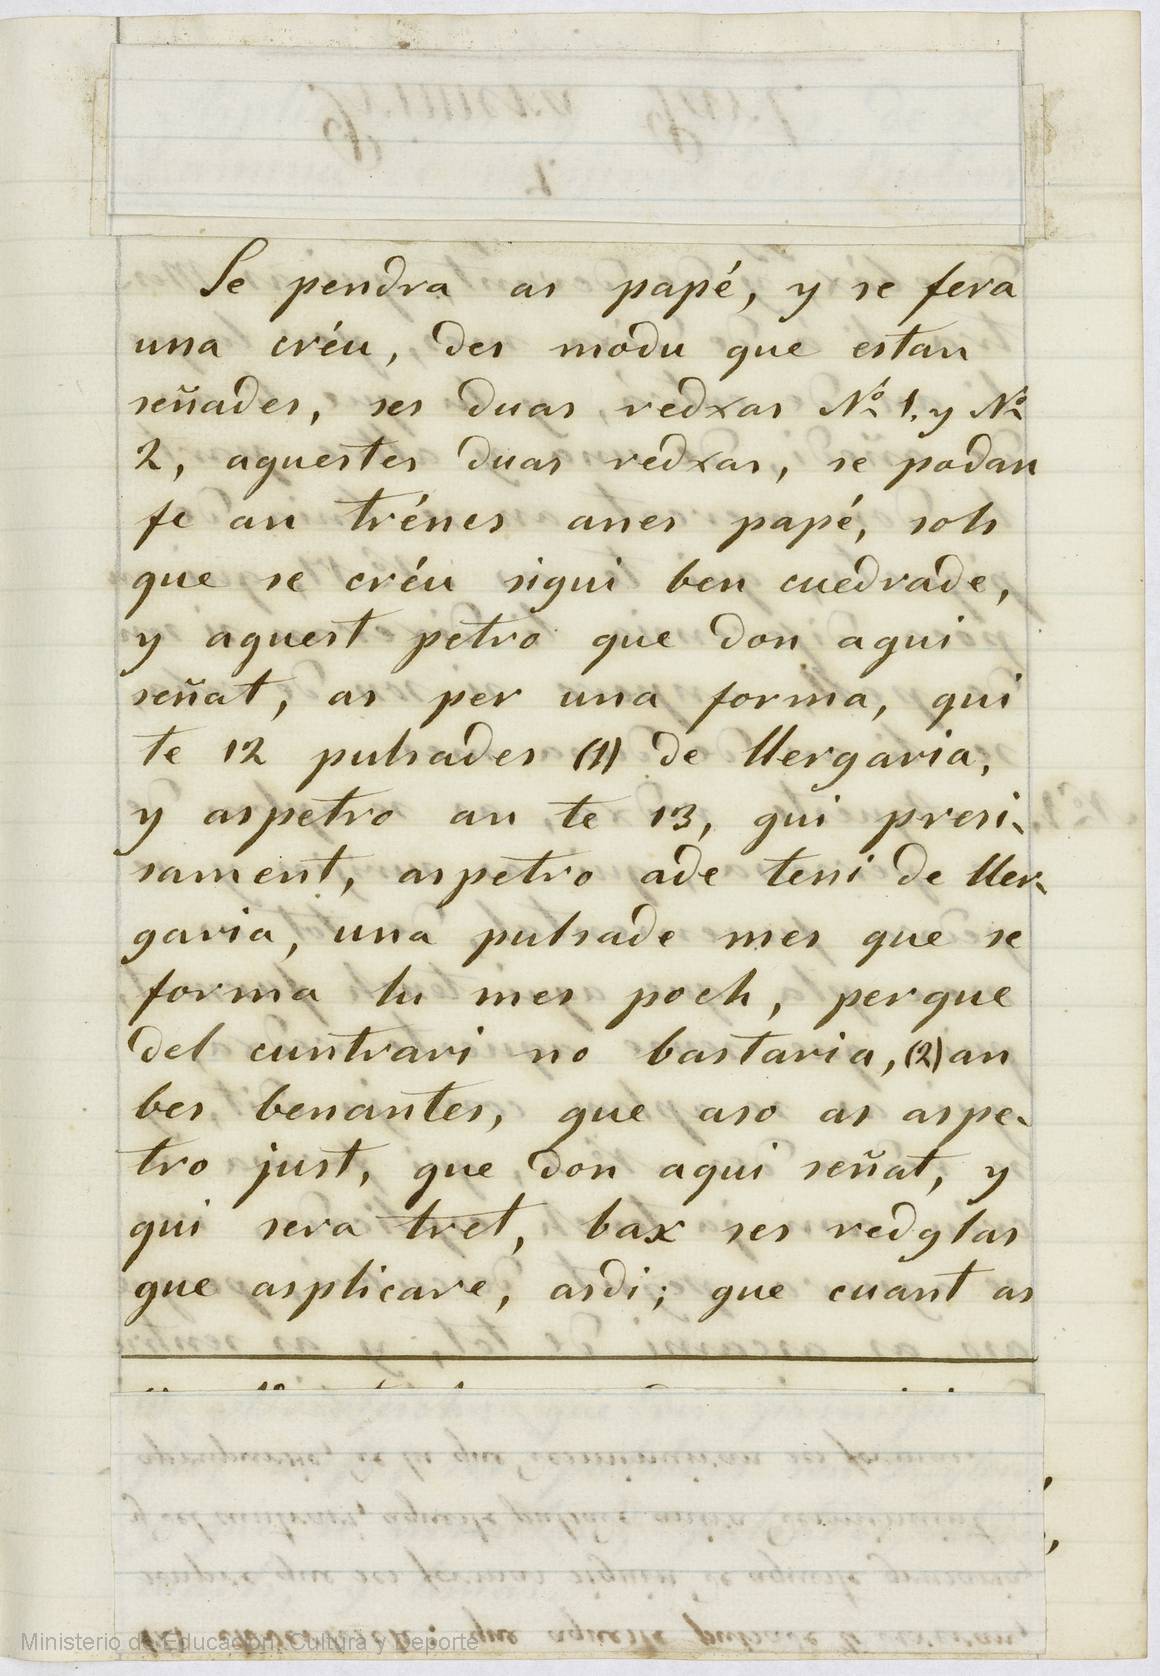 Se pendra as papé, y se fera
una créu, des modu que estan
señades, ses duas redxas Nº 1. y Nº
2, aquestes duas redxas, se podan
fe an trénes anes papé, sols
que se créu sigui ben cuedrade,
y aquest petro que don aqui
señat, as per una forma, qui
te 12 pulsades (1) de llergaria,
y aspetro an te 13, qui presi-
sament, aspetro ade teni de ller-
garia, una pulsade mes que se
forma lu mes poch, perque
del cuntrari no bastaria, (2) an
bes benantes, que aso as aspe-
tro just, que don aqui señat, y
qui sera tret, bax ses redglas
que asplicare, asdi; que cuant as
Ministerio de Educación, Cultura y Deporte